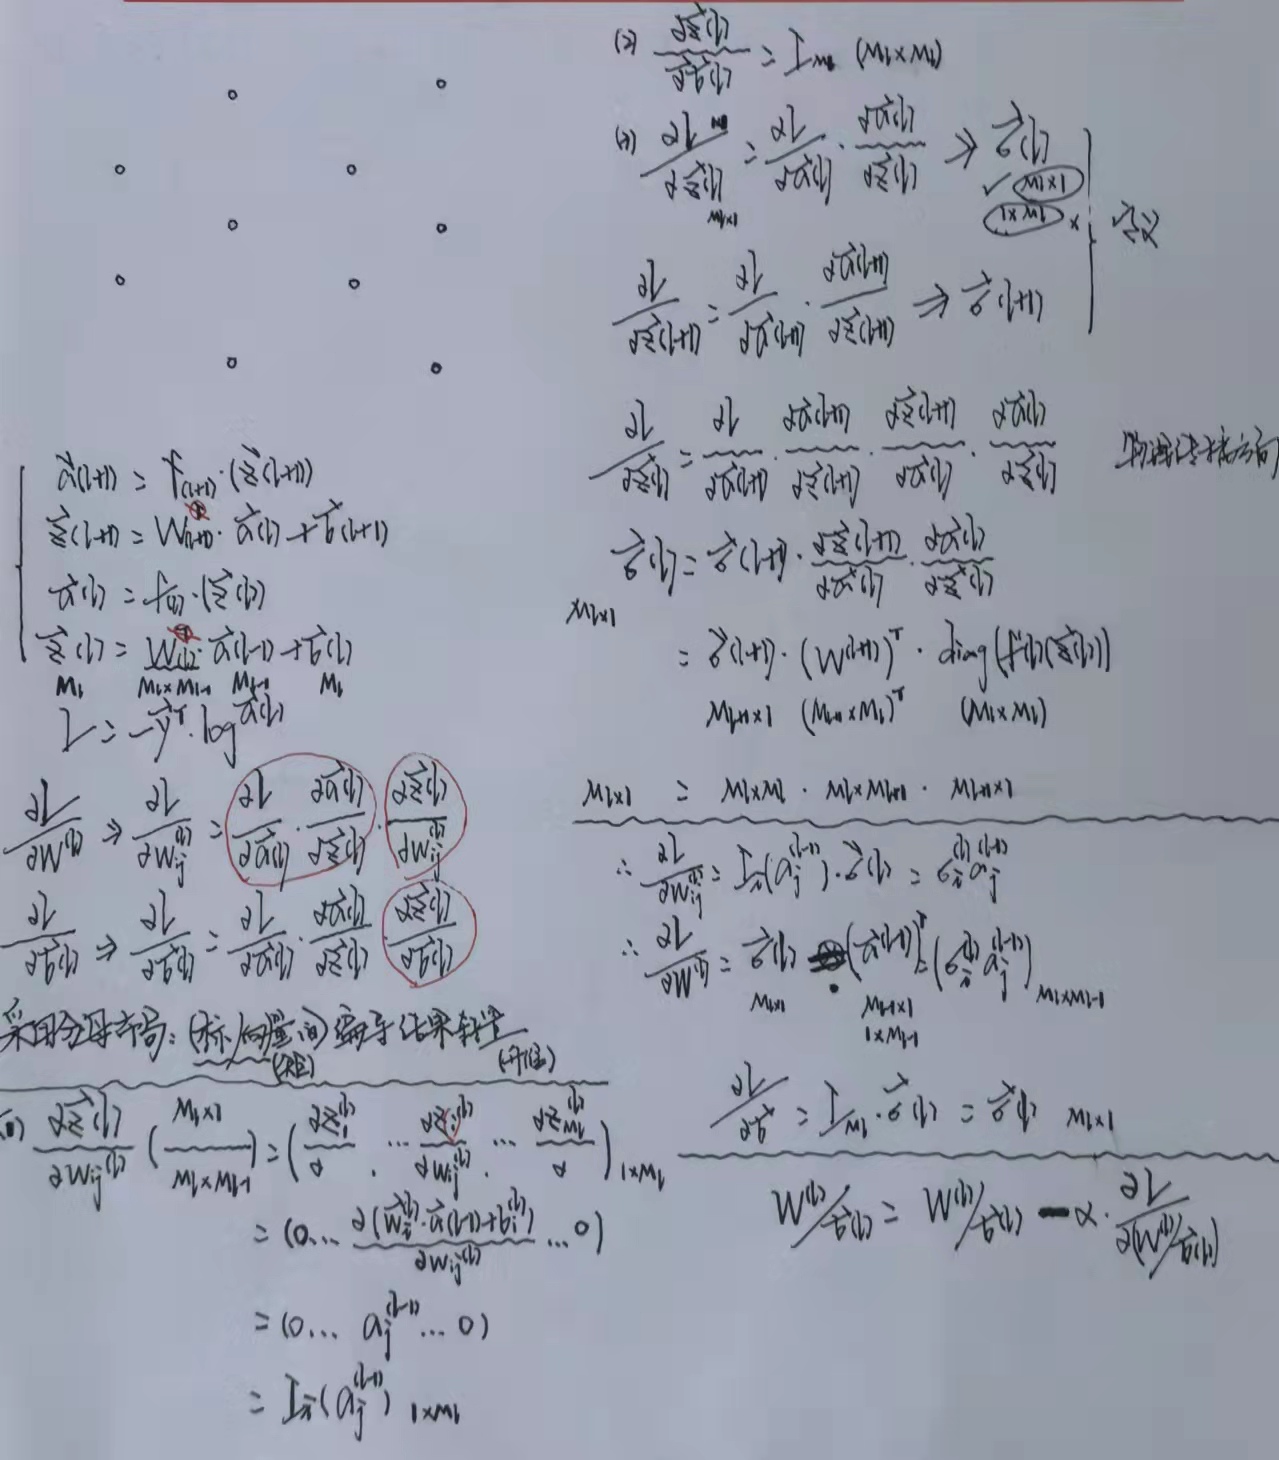 { a⃗(l+1) = f(l+1)·(z⃗(l+1))
z⃗(l+1) = W(l+1)·a⃗(l)+b⃗(l+1)
a⃗(l) = f(l)·(z⃗(l))
z⃗(l) = W(l)·a⃗(l-1)+b⃗(l)
M_l M_l×M_{l-1} M_{l-1} M_l
L = -y⃗^T·log a⃗(l)
∂L/∂W^(l) ⇒ ∂L/∂w_ij^(l) = ∂L/∂a⃗(l)·∂a⃗(l)/∂z⃗(l)·∂z⃗(l)/∂w_ij^(l)
∂L/∂b⃗(l) ⇒ ∂L/∂b⃗(l) = ∂L/∂a⃗(l)·∂a⃗(l)/∂z⃗(l)·∂z⃗(l)/∂b⃗(l)
采用分母布局:(标/向量间)偏导结果转置
(1) ∂z⃗(l)/∂w_ij^(l) (M_l×1/M_l×M_{l-1}) = (∂z_1^(l)/∂ . … ∂z_i^(l)/∂w_ij^(l) . … ∂z_{M_l}^(l)/∂)_{1×M_l}
= (0… ∂(w⃗_i^(l)·a⃗(l-1)+b_i^(l))/∂w_ij^(l) …0)
= (0… a_j^(l-1) … 0)
= I_i(a_j^(l-1)) 1×M_l
(2) ∂z⃗(l)/∂b⃗(l) = I_{M_l} (M_l×M_l)
(3) ∂L/∂z⃗(l) = ∂L/∂a⃗(l)·∂a⃗(l)/∂z⃗(l) ⇒ δ⃗(l)
M_l×1
✓ M_l×1
1×M_l ×
} 定义
∂L/∂z⃗(l+1) = ∂L/∂a⃗(l+1)·∂a⃗(l+1)/∂z⃗(l+1) ⇒ δ⃗(l+1)
∂L/∂z⃗(l) = ∂L/∂a⃗(l+1)·∂a⃗(l+1)/∂z⃗(l+1)·∂z⃗(l+1)/∂a⃗(l)·∂a⃗(l)/∂z⃗(l)
δ⃗(l) = δ⃗(l+1)·∂z⃗(l+1)/∂a⃗(l)·∂a⃗(l)/∂z⃗(l)
M_l×1
= δ⃗(l+1)·(W^(l+1))^T·diag(f'(l)(z⃗(l)))
M_{l+1}×1 (M_{l+1}×M_l)^T (M_l×M_l)
M_l×1 = M_l×M_l · M_l×M_{l+1} · M_{l+1}×1
∴ ∂L/∂w_ij^(l) = I_i(a_j^(l-1))·δ⃗(l) = δ_i^(l) a_j^(l-1)
∴ ∂L/∂W^(l) = δ⃗(l)·(a⃗(l-1))^T = (δ_i^(l) a_j^(l-1))_{M_l×M_{l-1}}
M_l×1 M_{l-1}×1
1×M_{l-1}
∂L/∂b⃗ = I_{M_l}·δ⃗(l) = δ⃗(l) M_l×1
W^(l)/b⃗(l) = W^(l)/b⃗(l) - α·∂L/∂(W^(l)/b⃗(l))